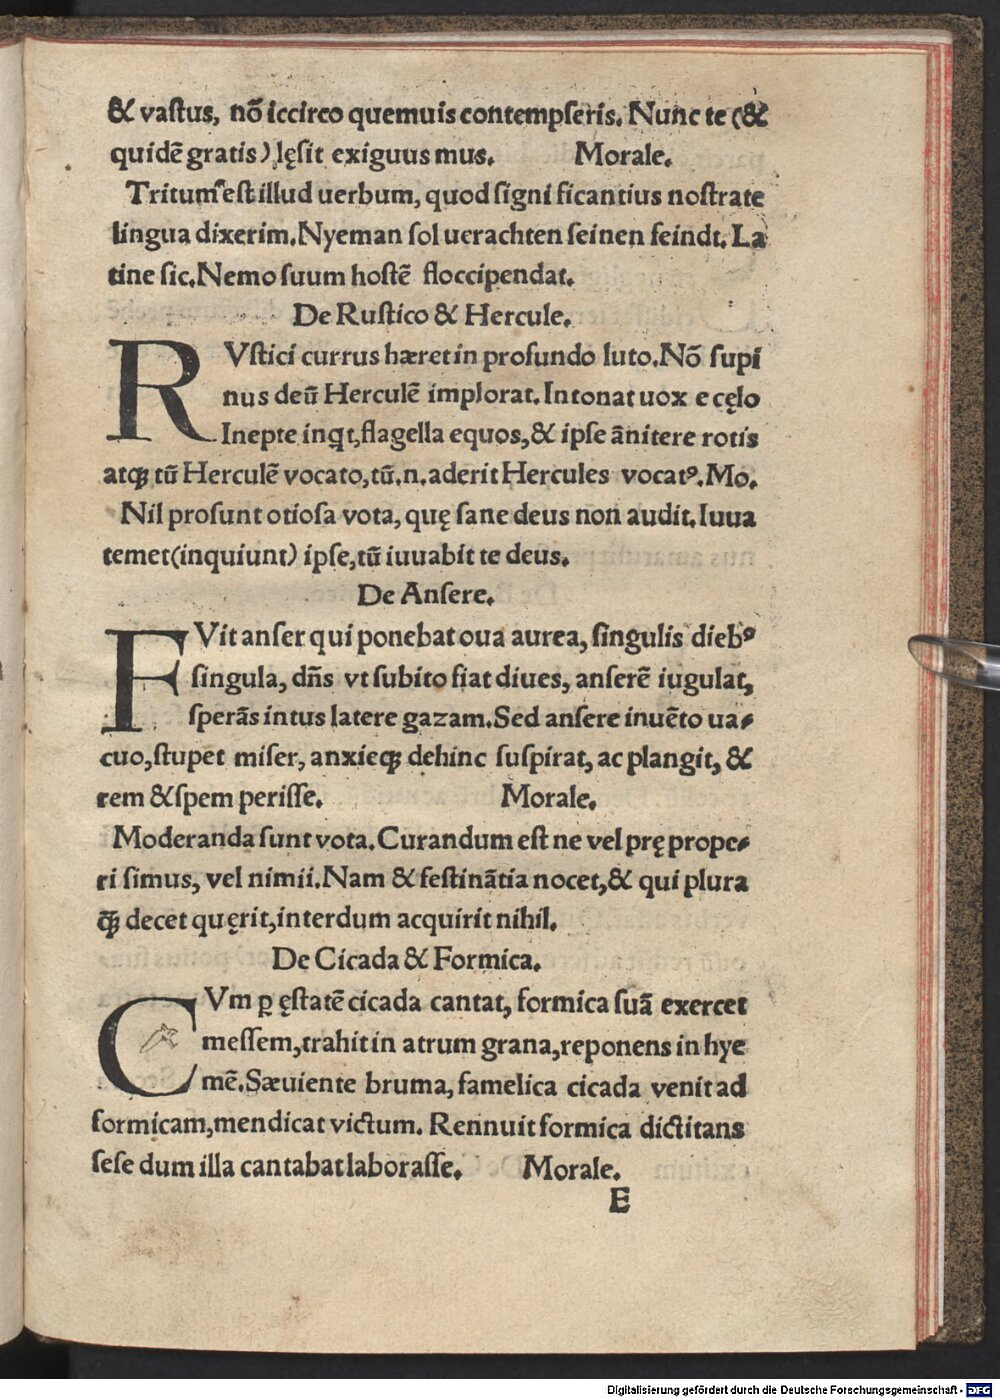 & vaſtus, nõ iccirco quemuis contempſeris. Nunc te (&
quidẽ gratis) lęſit exiguus mus. Morale.
Tritum eſt illud uerbum, quod ſigni ficantius noſtrate
lingua dixerim. Nyeman ſol uerachten ſeinen feindt. La
tine ſic. Nemo ſuum hoſtẽ floccipendat.
De Ruſtico & Hercule.
RVſtici currus hæret in profundo luto. Nõ ſupi
nus deũ Herculẽ implorat. Intonat uox e cęlo
Inepte inꝗt, flagella equos, & ipſe ãnitere rotis
atqꝫ tũ Herculẽ vocato, tũ.n. aderit Hercules vocatꝰ. Mo.
Nil proſunt otioſa vota, quę ſane deus non audit. Iuua
temet (inquiunt) ipſe, tũ iuuabit te deus.
De Anſere.
FVit anſer qui ponebat oua aurea, ſingulis diebꝰ
ſingula, dñs vt ſubito fiat diues, anſerẽ iugulat,
ſperãs intus latere gazam. Sed anſere inuẽto ua⸗
cuo, ſtupet miſer, anxieqꝫ dehinc ſuſpirat, ac plangit, &
rem & ſpem periſſe. Morale.
Moderanda ſunt vota. Curandum eſt ne vel pręprope⸗
ri ſimus, vel nimii. Nam & feſtinãtia nocet, & qui plura
q̃ꝫ decet quęrit, interdum acquirit nihil.
De Cicada & Formica.
CVm ꝑ ęſtatẽ cicada cantat, formica ſuã exercet
meſſem, trahit in atrum grana, reponens in hye
mẽ. Sæuiente bruma, famelica cicada venit ad
formicam, mendicat victum. Rennuit formica dictitans
ſeſe dum illa cantabat laboraſſe. Morale.
E
Digitalisierung gefördert durch die Deutsche Forschungsgemeinschaft - DFG